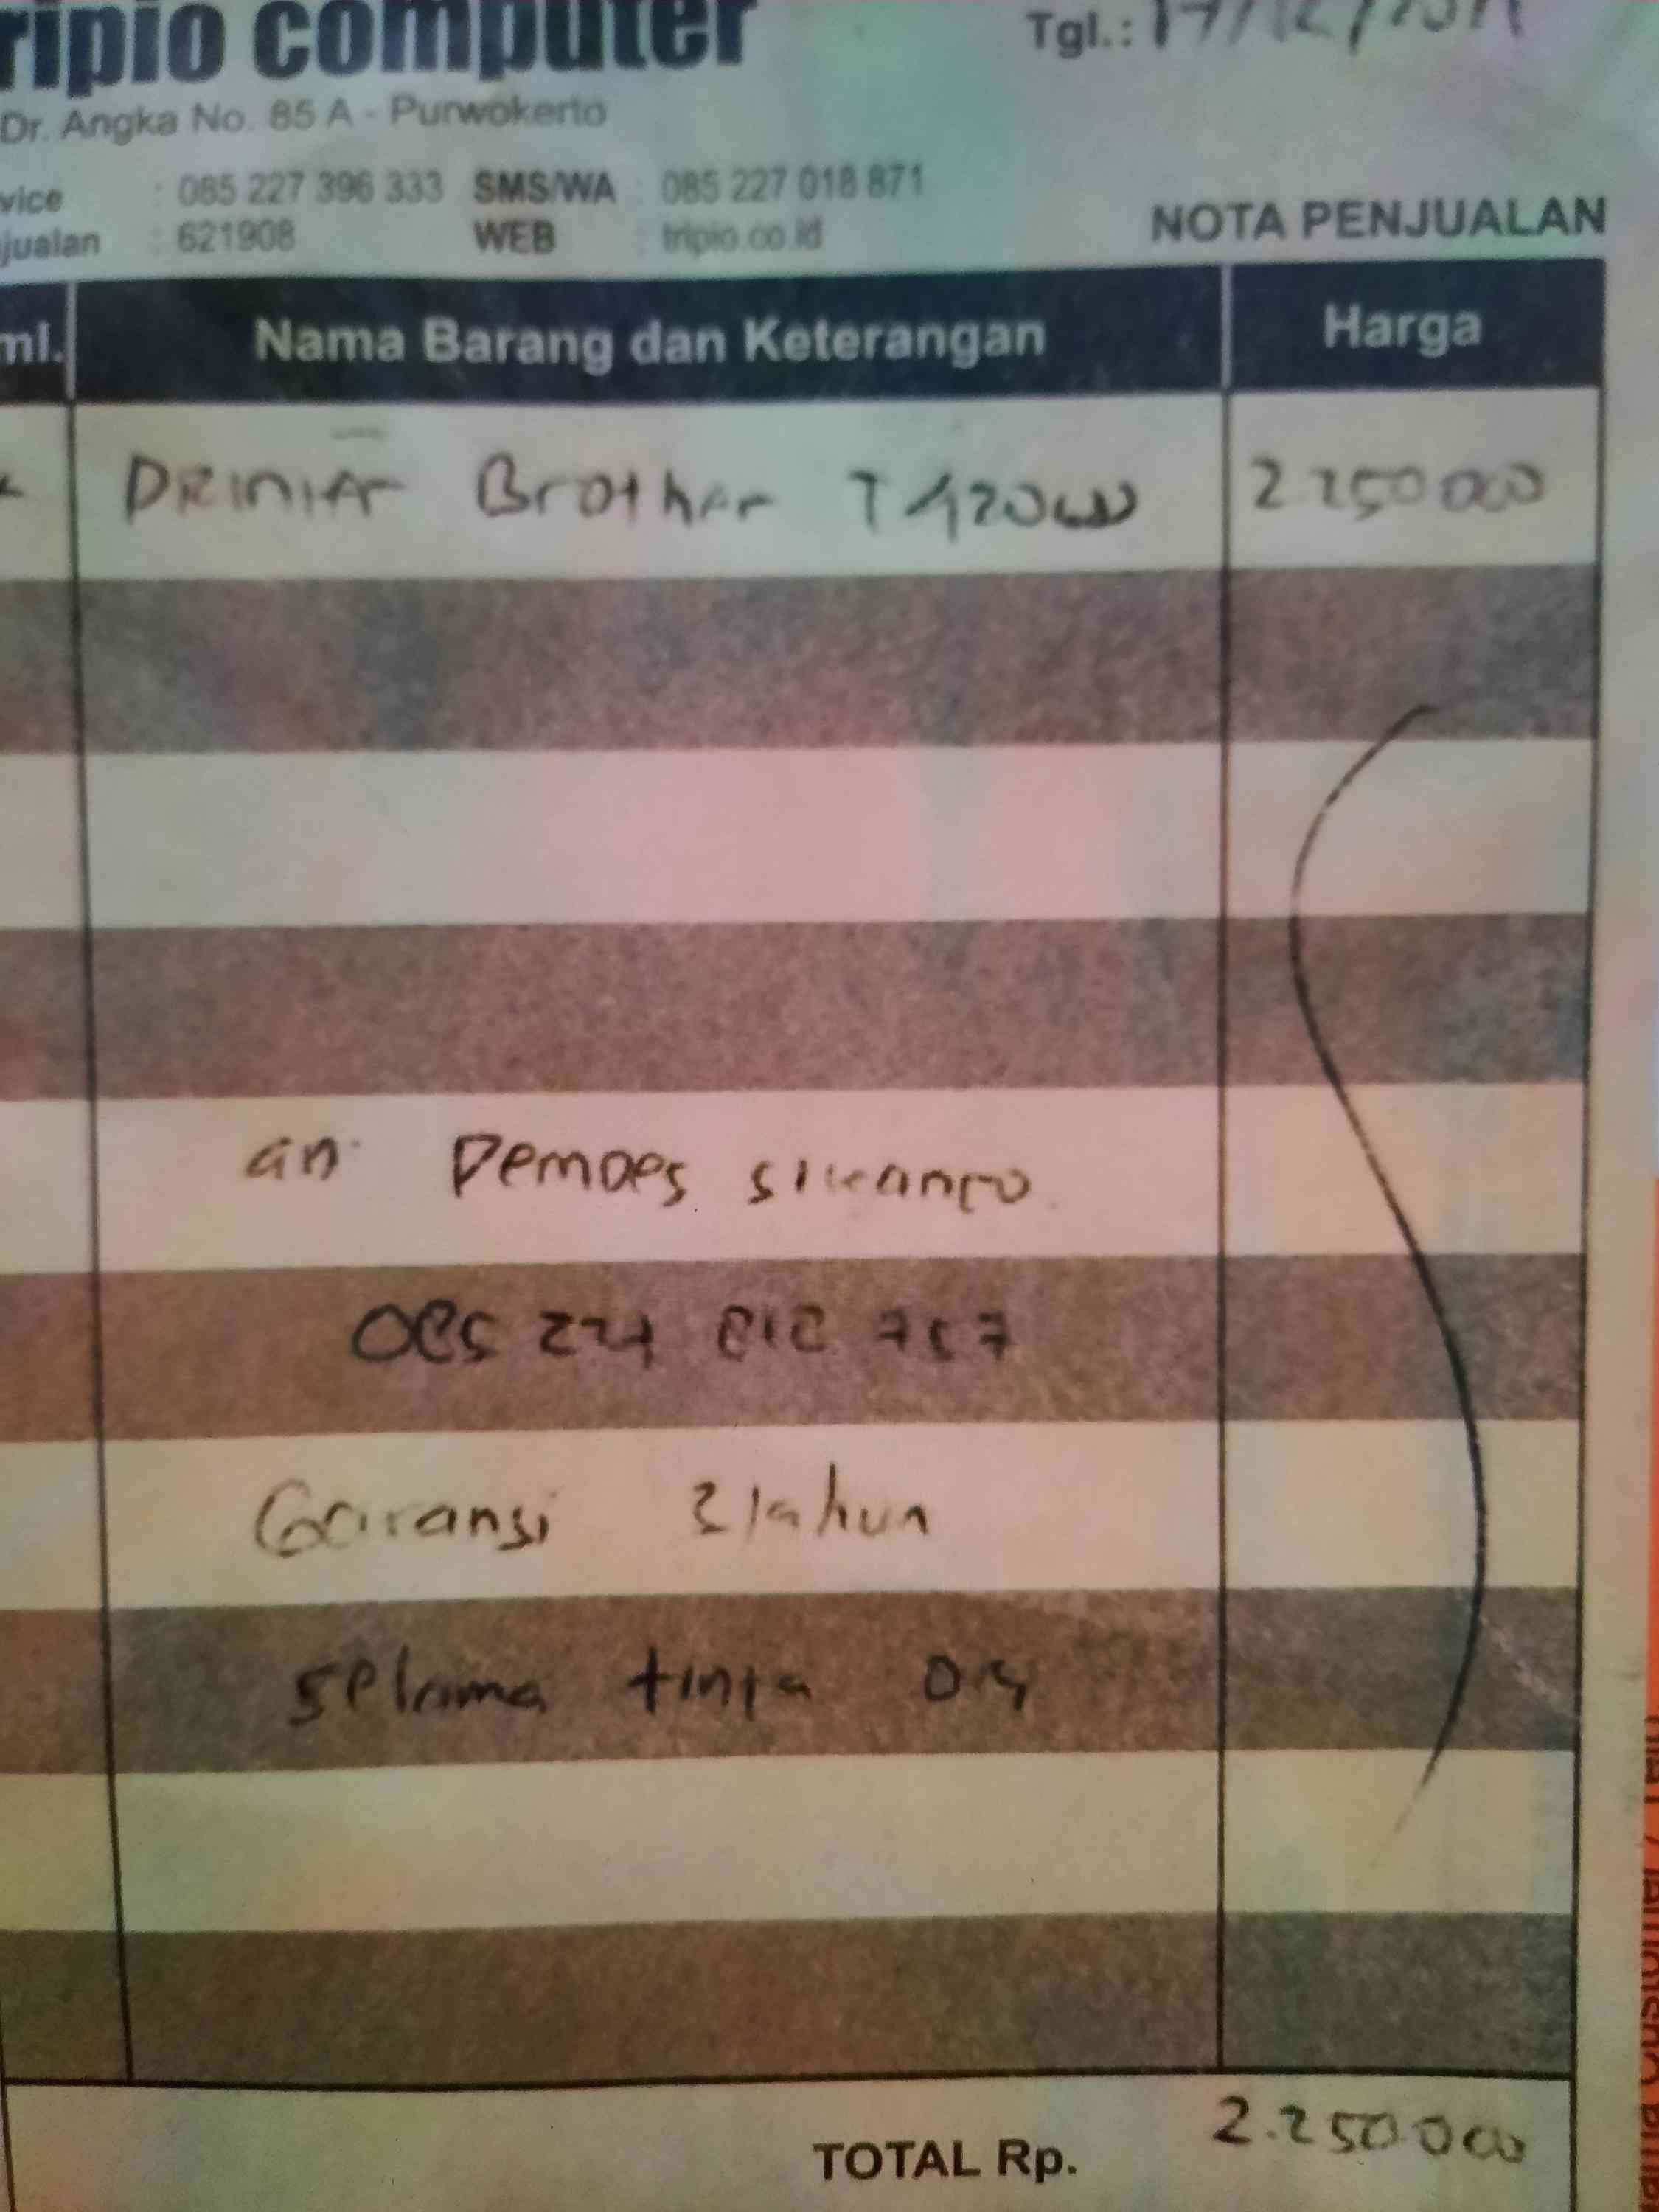 ripio computer
Tgl.: 17/12/2021
Dr. Angka No. 85 A - Purwokerto
vice : 085 227 396 333 SMS/WA : 085 227 018 871
jualan : 621908 WEB : tripio.co.id
NOTA PENJUALAN
ml. Nama Barang dan Keterangan Harga
Printer Brother T420W 2 250 000
an. Pemdes
085 227 818 757
Garansi tahun
selama tinta ori
TOTAL Rp. 2.250.000